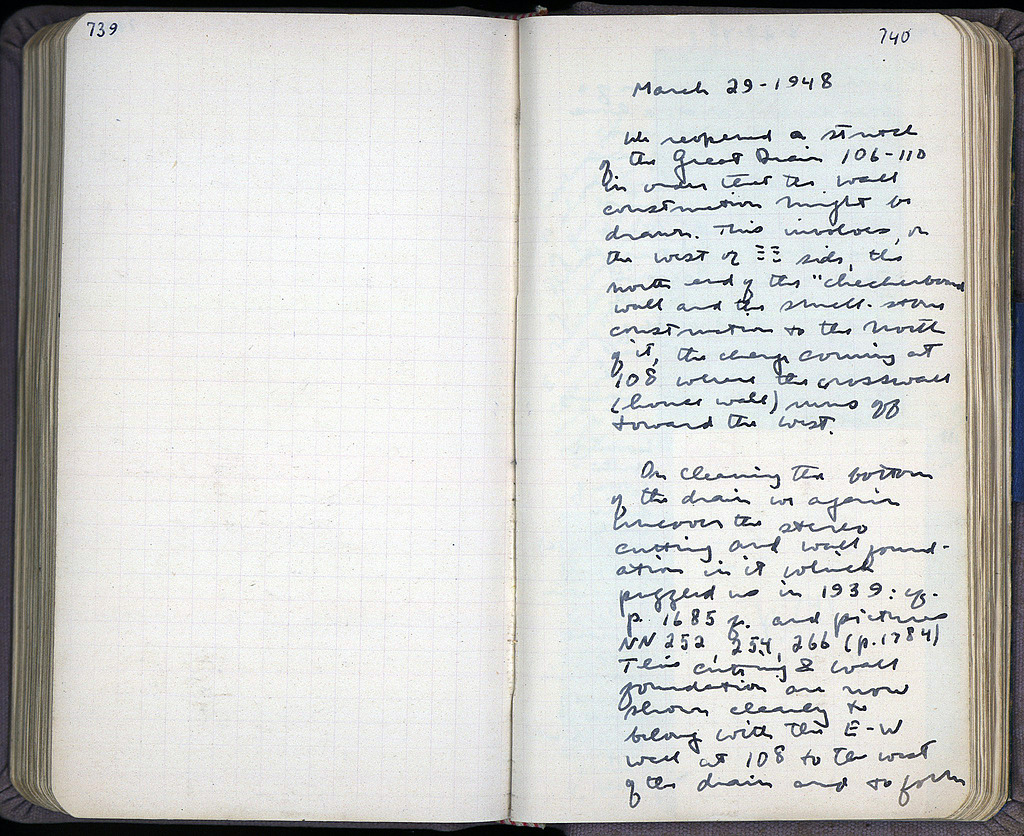 739
740
March 29-1948
We reopened a stretch
of the Great Drain 106-110
in order that the wall
construction might be
drawn. This involves, on
the west or ΞΞ side, the
north end of the "checkerboard
wall and the small-stone
construction to the north
of it, the change coming at
108 where the crosswall
(house wall) runs off
toward the west.
On cleaning the bottom
of the drain we again
uncover the stereo
cutting and wall found-
ation in it which
puzzled us in 1939: cf.
p. 1685 f. and pictures
NN 252, 254, 266 (p. 1784)
This cutting & wall
foundation are now
shown clearly to
belong with the E-W
wall at 108 to the west
of the drain and to